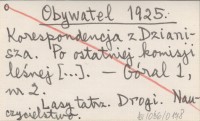 Obywatel 1925.
Korespondencja z Dziani-
sza. Po ostatniej komisji
leśnej [..]. — Góral 1,
nr 2.
Lasy tatrz. Drogi. Nau-
czycielstwo.